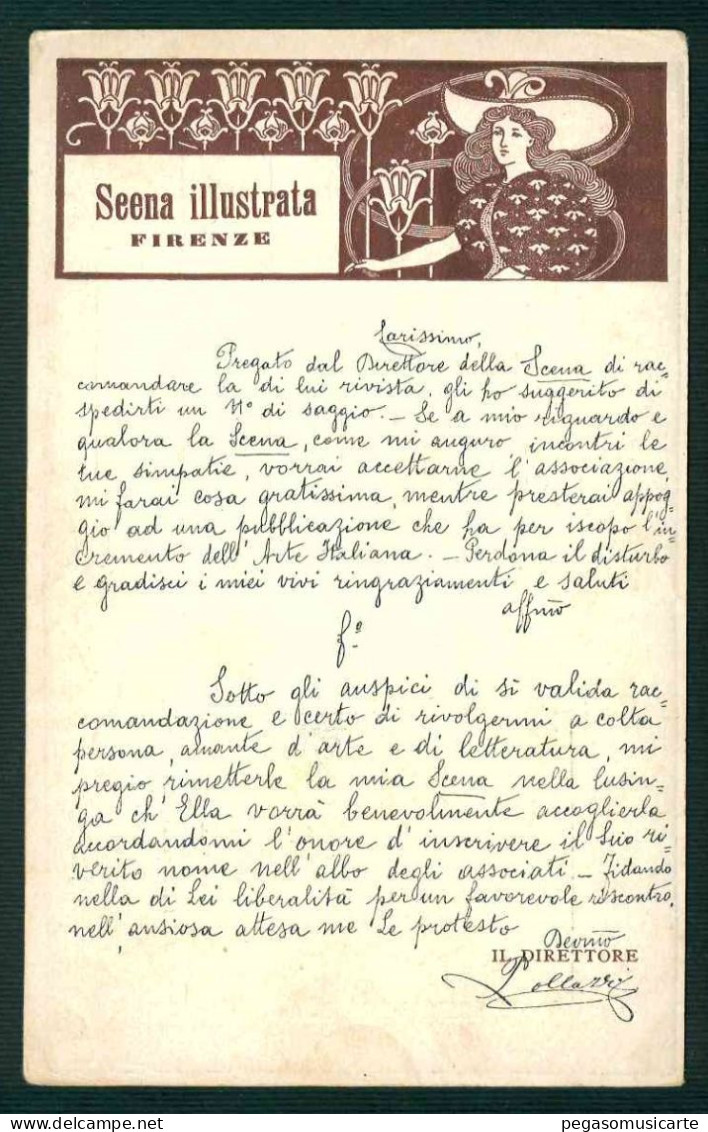 Scena illustrata
FIRENZE
Carissimo,
Pregato dal Direttore della Scena di rac=
comandare la di lui rivista, gli ho suggerito di
spedirti un N.º di saggio. _ Se a mio riguardo e
qualora la Scena, come mi auguro incontri le
tue simpatie, vorrai accettarne l'associazione,
mi farai cosa gratissima, mentre presterai appog=
gio ad una pubblicazione che ha per iscopo l'in=
cremento dell'Arte Italiana. _ Perdona il disturbo
e gradisci i miei vivi ringraziamenti e saluti
affmo
f.º
Sotto gli auspici di sì valida rac=
comandazione e certo di rivolgermi a colta
persona, amante d'arte e di letteratura, mi
pregio rimetterle la mia Scena nella lusin=
ga ch'Ella vorrà benevolmente accoglierla
accordandomi l'onore d'inscrivere il Suo ri=
verito nome nell'albo degli associati. _ Fidando
nella di Lei liberalità per un favorevole riscontro,
nell'ansiosa attesa me Le protesto
Devmo
IL DIRETTORE
Pollazzi
pegasomusicarte